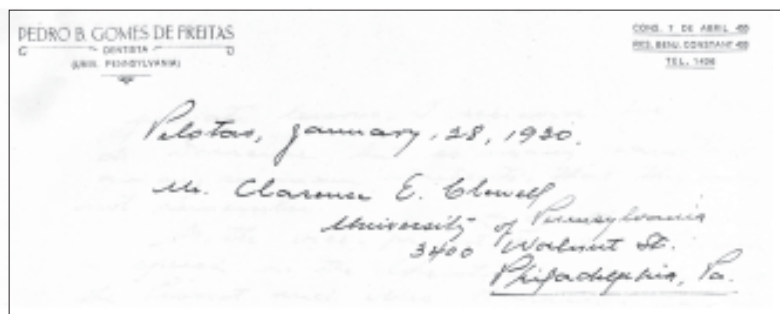 PEDRO B. GOMES DE FREITAS
DENTISTA
(UNIV. PENNSYLVANIA)
CONS. 7 DE ABRIL
RES. BENJ. CONSTANT
TEL. 1406
Pelotas, January, 28, 1930.
Mr. Clarence E. Clewell
University of Pennsylvania
3400 Walnut St.
Philadelphia, Pa.